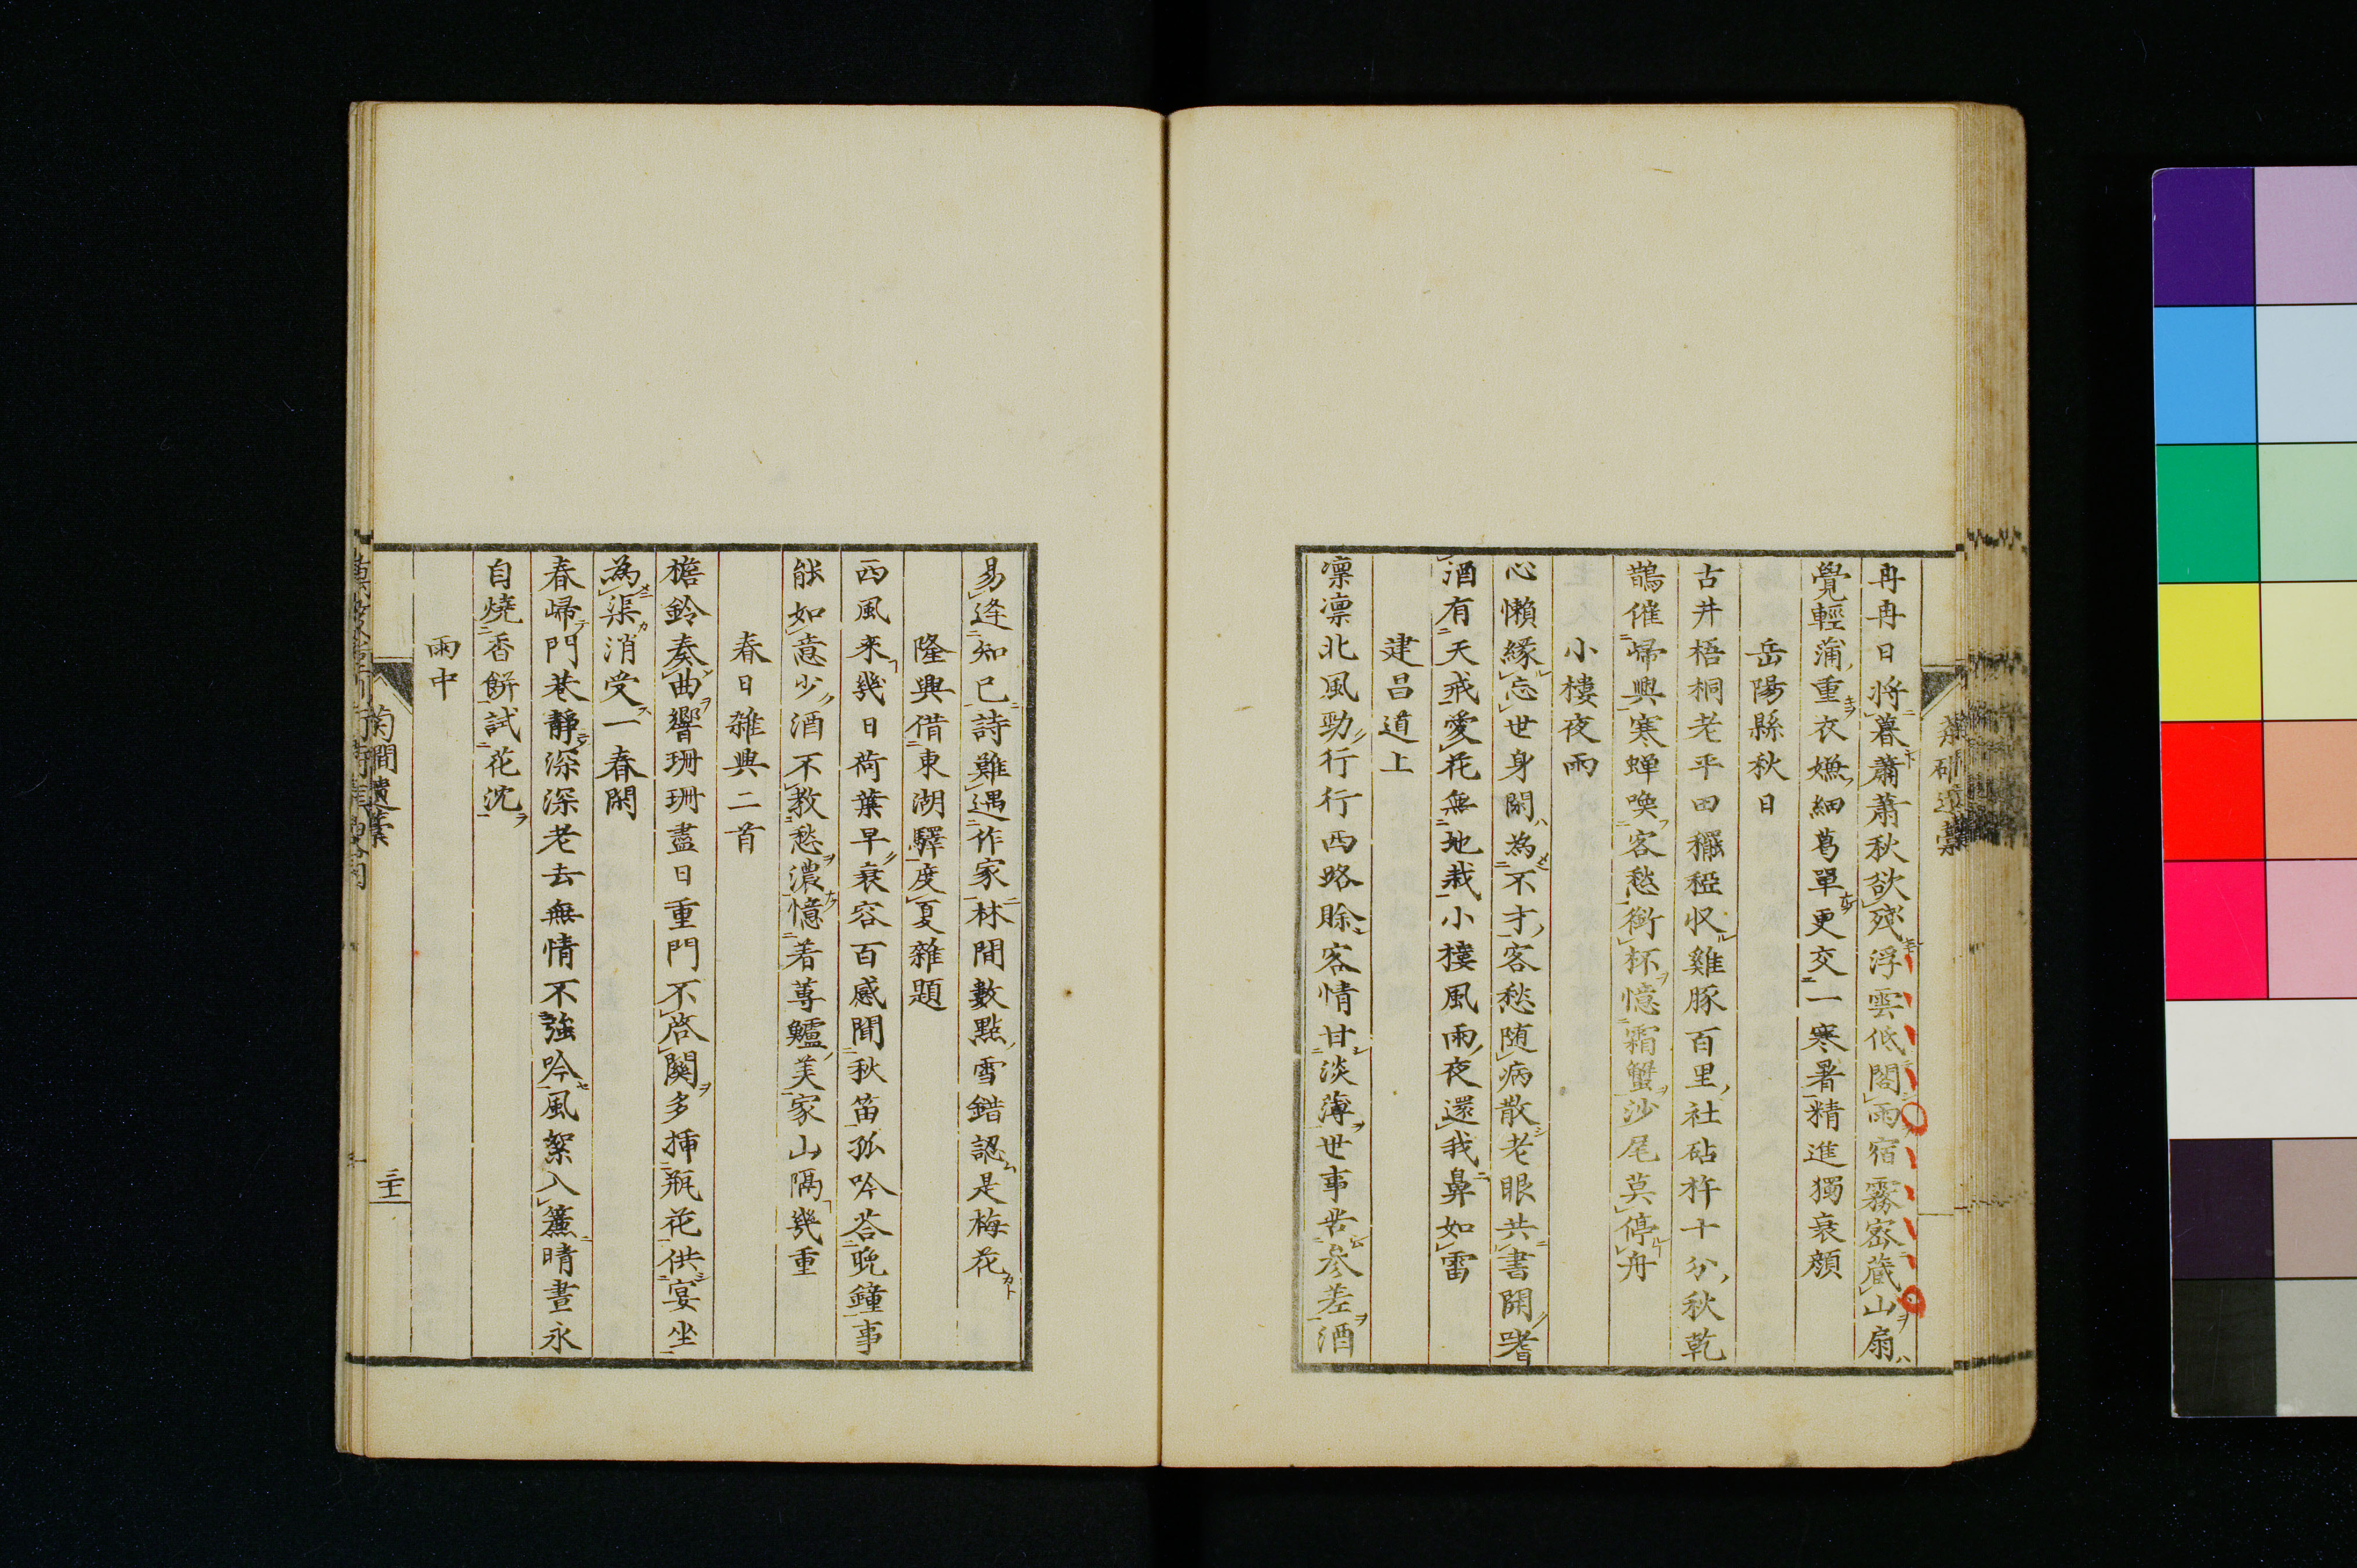 冉冉日將暮蕭蕭秋欲殘浮雲低閣雨宿霧密藏山扇
覺輕蒲重衣嫌細葛單更交一寒暑精進獨衰顏
岳陽縣秋日
古井梧桐老平田䆉稏収雞豚百里社砧杵十分秋乾
鵲催歸興寒蟬喚客愁銜杯憶霜蟹沙尾莫停舟
小樓夜雨
心懶緣忘世身閑為不才客愁随病散老眼共書開嗜
酒有天戒愛花無地栽小樓風雨夜還我鼻如雷
建昌道上
凛凛北風勁行行西路賖客情甘淡薄世事苦參差酒
易逢知己詩難遇作家林間數點雪錯認是梅花
隆興借東湖驛度夏雜題
西風來幾日荷葉早衰容百感聞秋笛孤吟荅晩鐘事
能如意少酒不教愁濃憶着蓴鱸美家山隔幾重
春日雜興二首
檐鈴奏曲響珊珊盡日重門不啓關多揷瓶花供宴坐
為渠消受一春閑
春歸門巷靜深深老去無情不強吟風絮入簾晴晝永
自燒香餅試花沈
雨中
菊磵遺藁